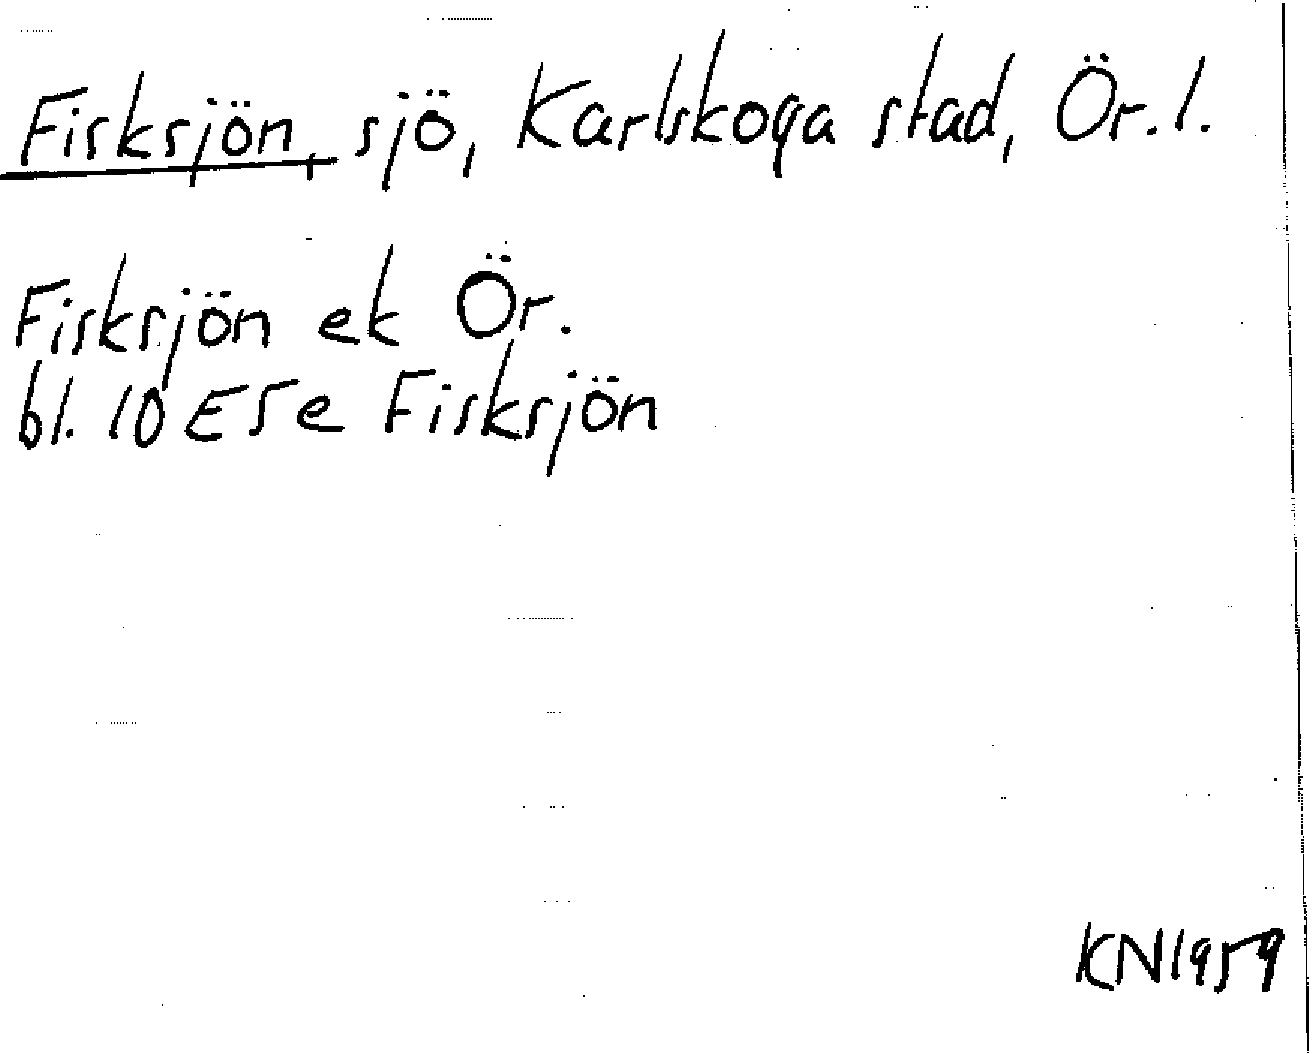 Fisksjön, sjö, Karlskoga stad, Ör. l.
Fisksjön ek Ör.
bl. 10 E5e Fisksjön
KN1959